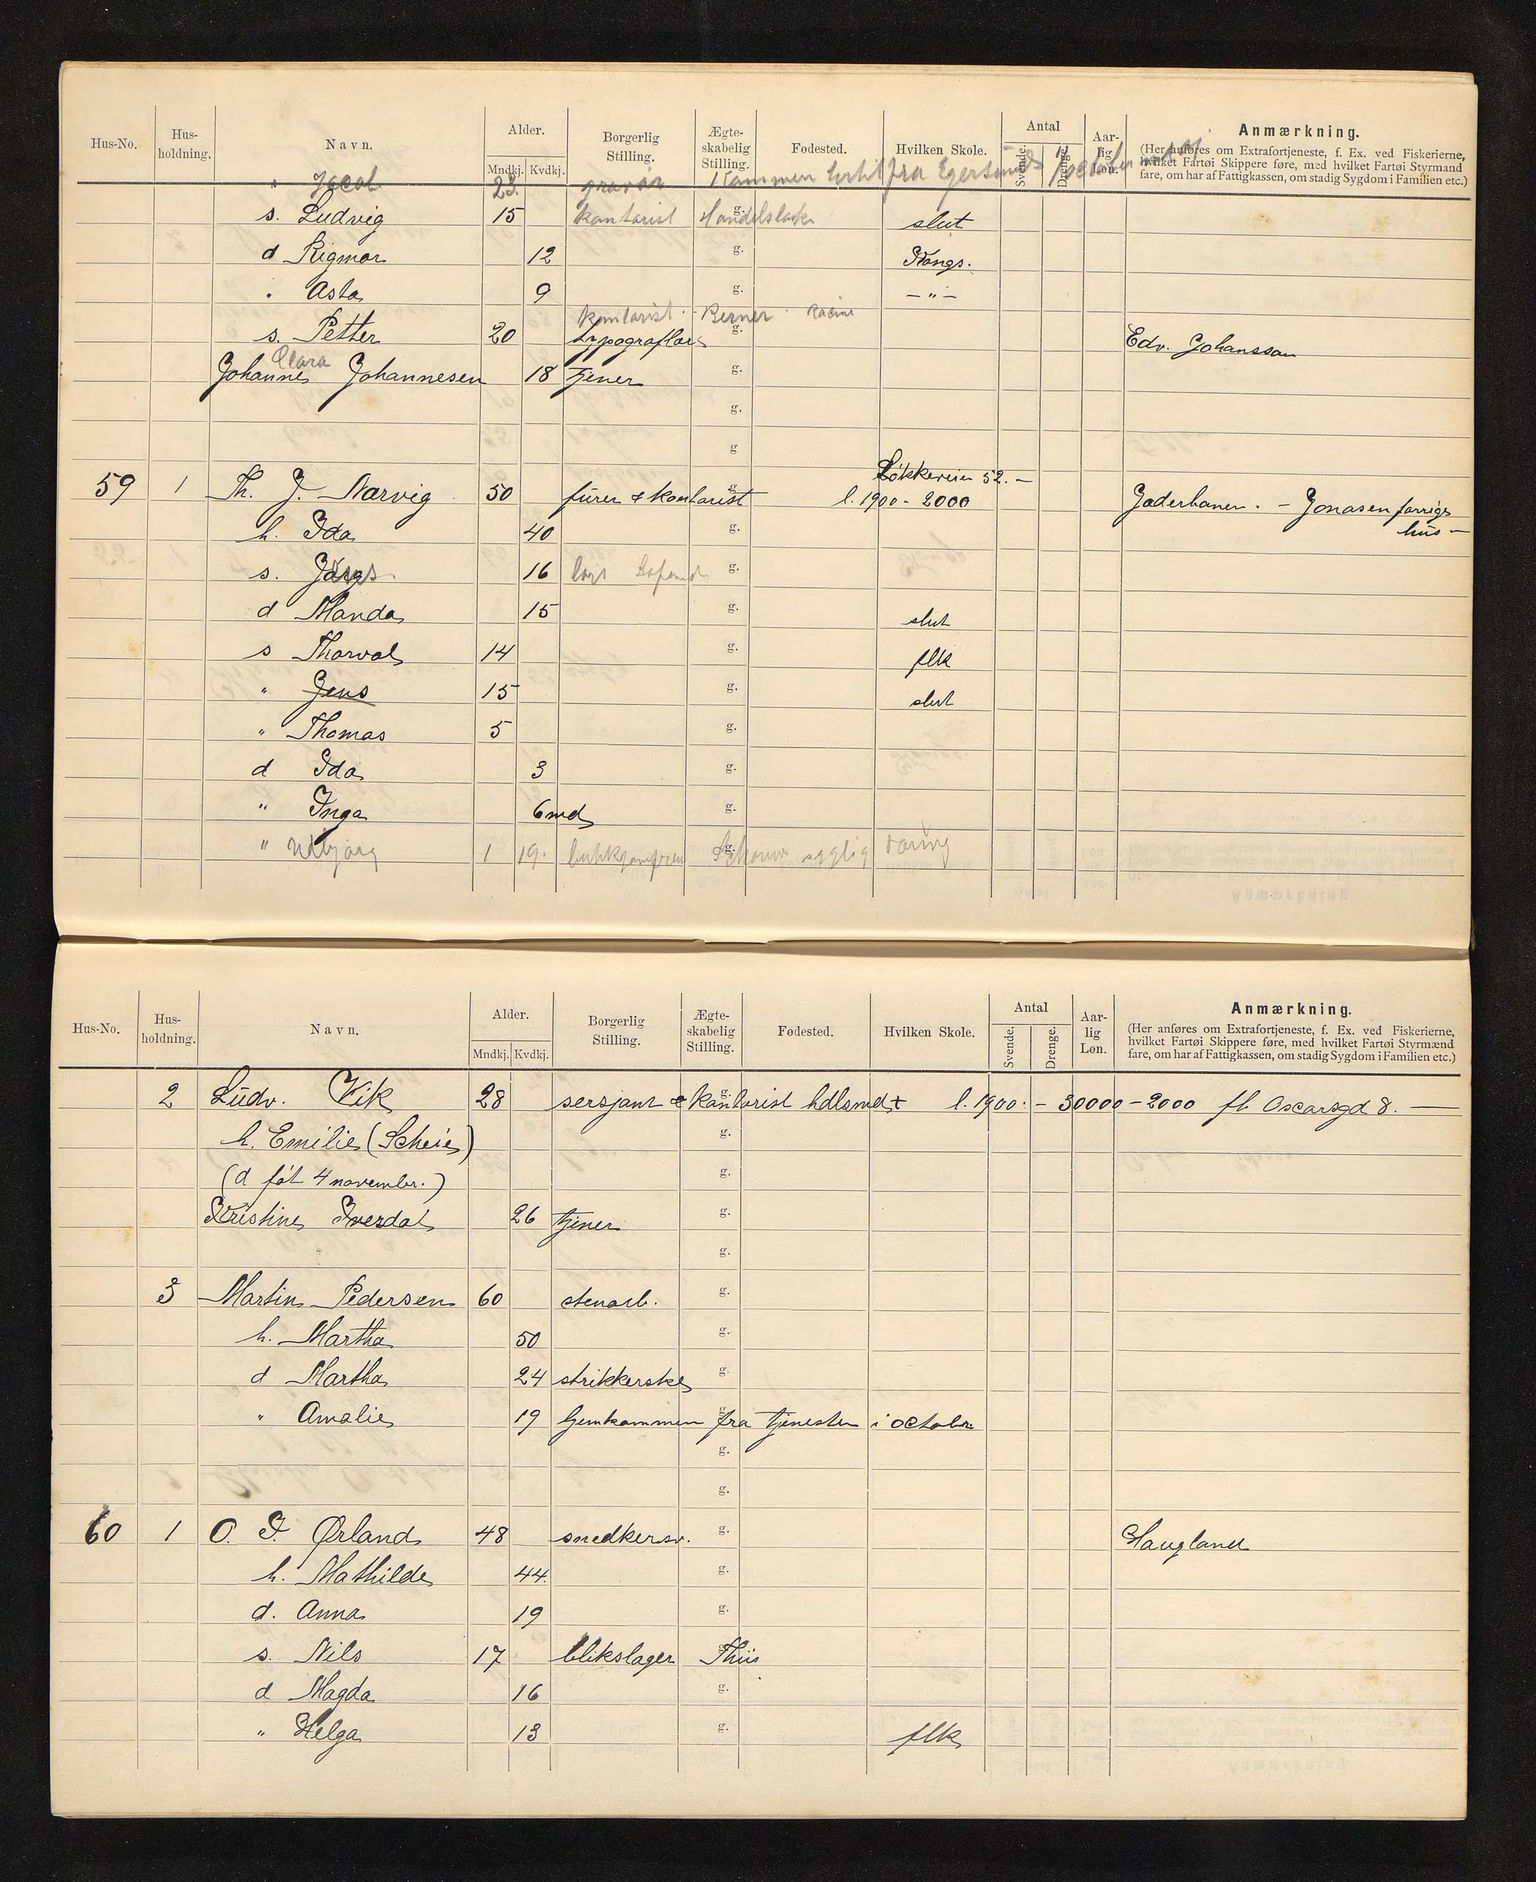 Hus-No. Hus-holdning. Navn. Alder. Mndkj. Kvdkj. Borgerlig Stilling. Ægte-skabelig Stilling. Fødested. Hvilken Skole. Antal Svende. Drenge. Aar-lig Løn. Anmærkning.
(Her anføres om Extrafortjeneste, f. Ex. ved Fiskerierne, hvilket Fartøi Skippere føre, med hvilket Fartøi Styrmænd fare, om har af Fattigkassen, om stadig Sygdom i Familien etc.)
" Jacob 23. gravør Kommen hertil fra Egersund
s. Ludvig 15 kontorist g. slut
d Rigmor 12 g. Kongs.
" Asta 9 g. — " —
kontorist Berner
s. Petter 20 typograflær g. Edv. Johanssen
Clara
Johanne Johannesen 18 tjener g.
g.
g
Løkkeveien 52. —
59 1 Th. J. Narvig 50 furer & kontorist g. l. 1900 - 2000 Jæderbanen. — Jonasen forrige
hus —
h. Ida 40 g.
s. 16 g.
d Manda 15 g. slut
s Thorval 14 g. flk
" Jens 15 g. slut
" Thomas 5 g.
d Ida 3 g.
" Inga 6 md g.
" 19. g.
Hus-No. Hus-holdning. Navn. Alder. Mndkj. Kvdkj. Borgerlig Stilling. Ægte-skabelig Stilling. Fødested. Hvilken Skole. Antal Svende. Drenge. Aar-lig Løn. Anmærkning.
(Her anføres om Extrafortjeneste, f. Ex. ved Fiskerierne, hvilket Fartøi Skippere føre, med hvilket Fartøi Styrmænd fare, om har af Fattigkassen, om stadig Sygdom i Familien etc.)
2 Ludv. Vik 28 sersjant & kontorist g. l. 1900. — 30000 - 2000 fl Oscarsgd 8. —
h. Emilie (Scheie) g.
(d føt 4 novembr.) g.
Kristine 26 tjener g.
g.
3 Martin Pedersen 60 stenarb. g.
h. Martha 50 g.
d Martha 24 strikkerske g.
" Amalie 19 hjemkommen fra tjeneste i octobr g.
g.
g.
60 1 O. T. Ørland 48 snedkersv. g. Haugland
h. Mathilde 44 g.
d. Anna 19 g.
s. Nils 17 blikslager Thiis g.
d Magda 16 g.
" Helga 13 g. flk